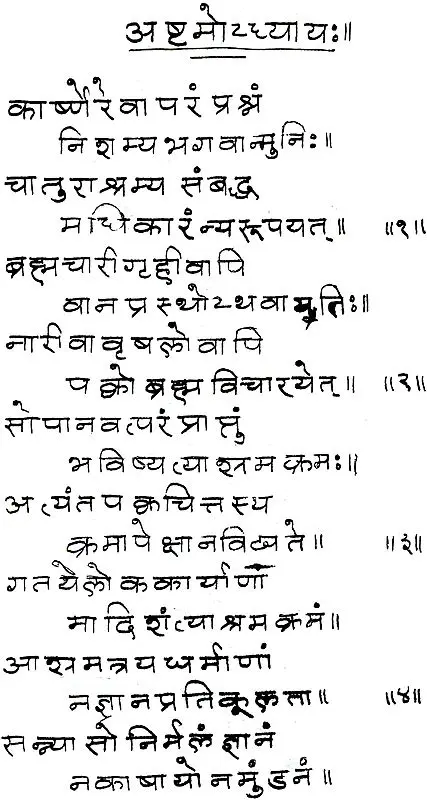 अष्टमोऽध्यायः॥
कार्ष्णेरेवापरं प्रश्नं
निशम्यभगवान्मुनिः॥
चातुराश्रम्य संबद्ध
मधिकारंन्यरूपयत्॥ ॥१॥
ब्रह्मचारीगृहीवापि
वानप्रस्थोऽथवायतिः॥
नारीवावृषलोवापि
पक्वोब्रह्मविचारयेत्॥ ॥२॥
सोपानवत्परंप्राप्तुं
भविष्यत्याश्रमक्रमः॥
अत्यंतपक्वचित्तस्य
क्रमापेक्षानविद्यते॥ ॥३॥
गतयेलोककार्याणां
मादिशंत्याश्रमक्रमं॥
आश्रमत्रयधर्माणां
नज्ञानप्रतिकूलता॥ ॥४॥
सन्न्यासोनिर्मलंज्ञानं
नकाषायोनमुंडनं॥